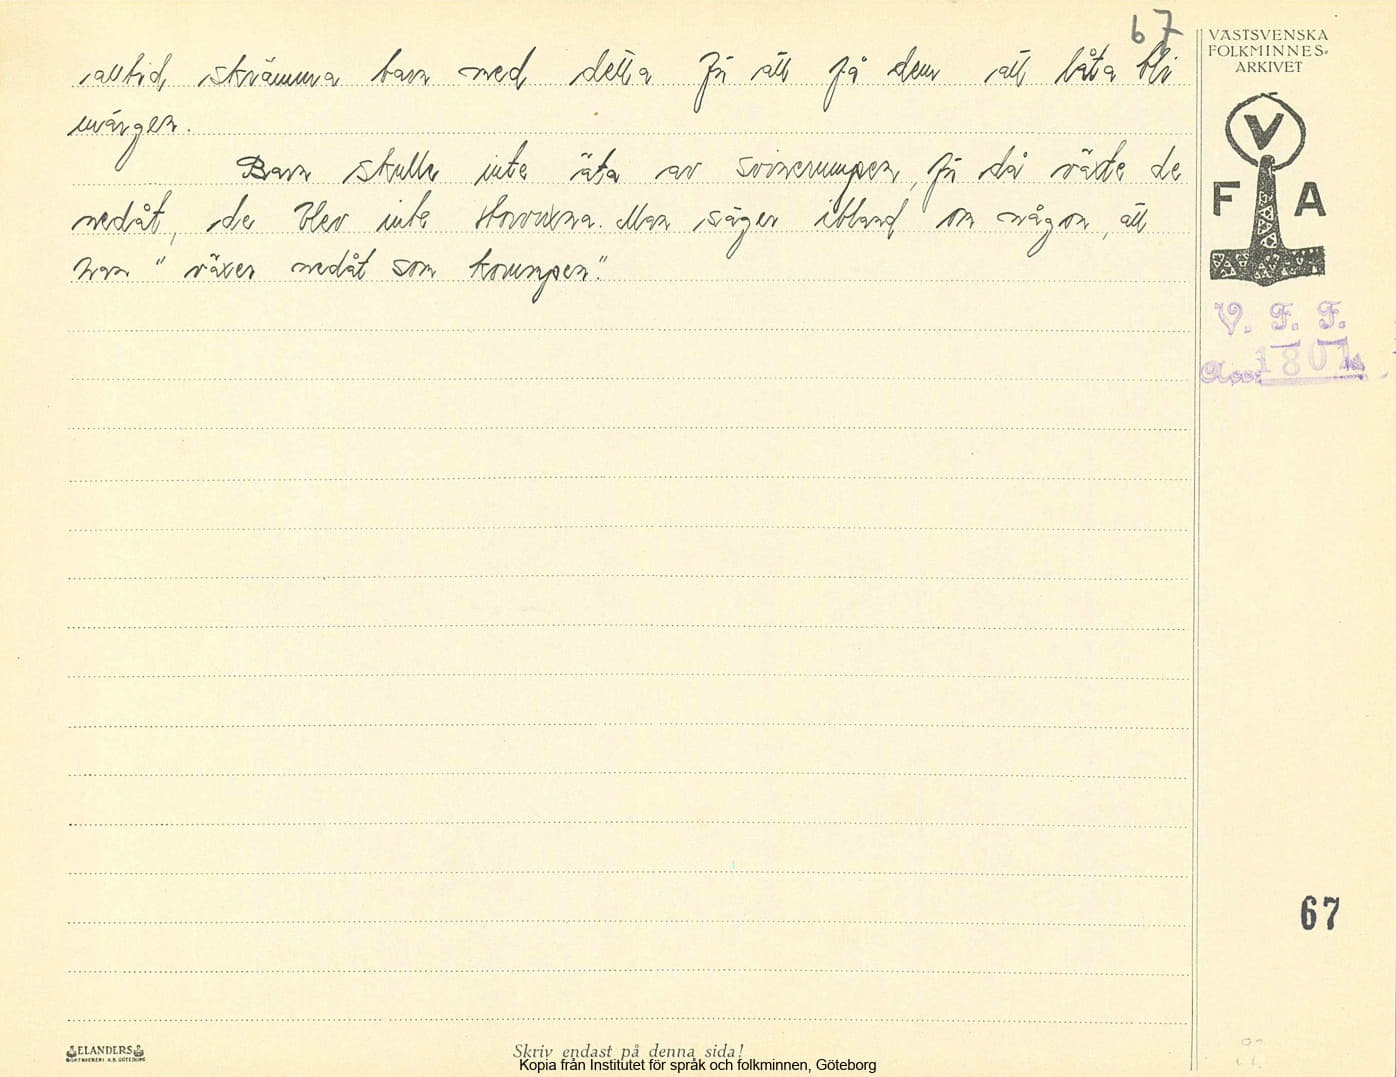 67
VÄSTSVENSKA
FOLKMINNES-
ARKIVET
alltid skrämma barn med detta för att få dem att låta bli
märgen.
Barn skulle inte äta av svinerumpen, för då växte de
nedåt, de blev inte storvuxna. Man säger ibland om någon, att
han "växer nedåt som korumpen".
V
F A
V. F. F.
Acc. 1801
67
ELANDERS
BOKTRYCKERI A.B. GÖTEBORG
Skriv endast på denna sida!
Kopia från Institutet för språk och folkminnen, Göteborg